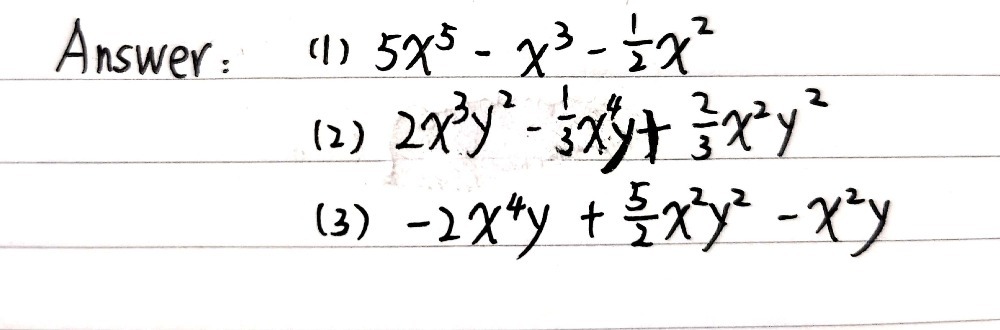 Answer: (1) 5x⁵ - x³ - ½x²
(2) 2x³y² - ⅓x⁴y + ⅔x²y²
(3) -2x⁴y + 5/2x²y² - x²y